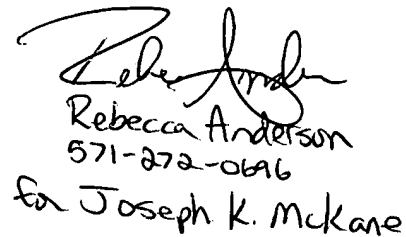 Rebecca Anderson
Rebecca Anderson
571-272-0696
for Joseph K. McKane